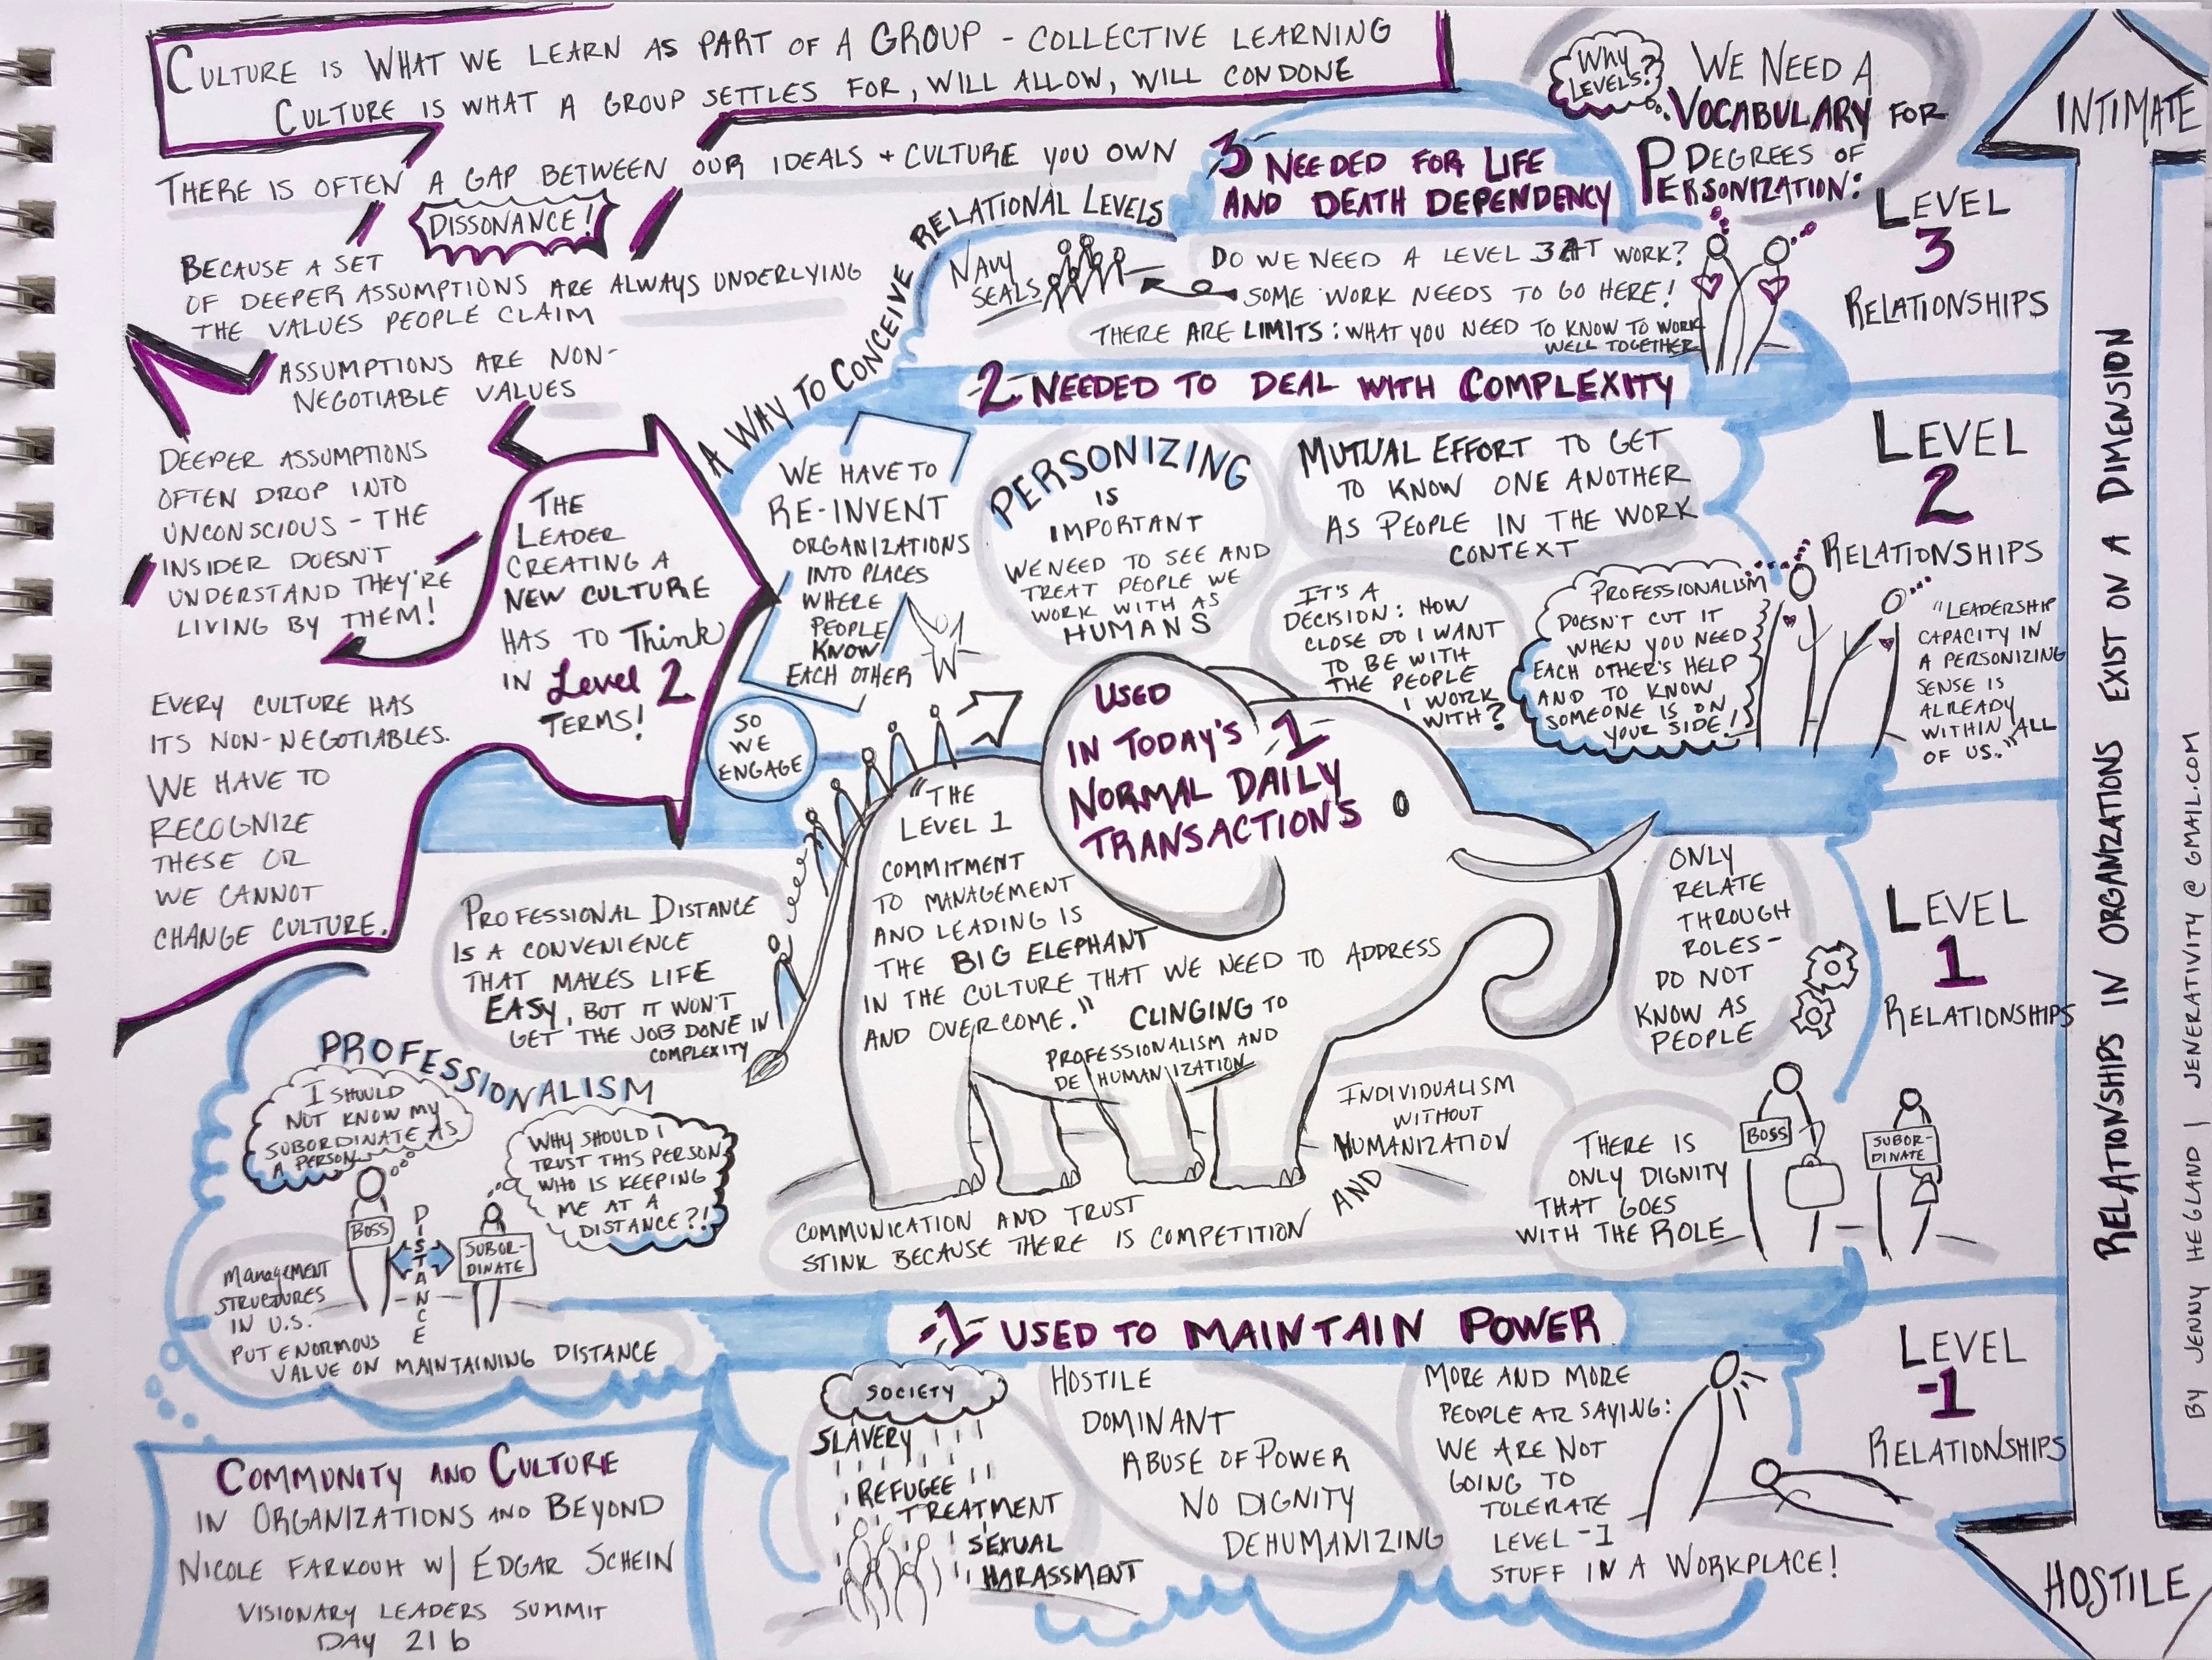 CULTURE IS WHAT WE LEARN AS PART OF A GROUP - COLLECTIVE LEARNING
CULTURE IS WHAT A GROUP SETTLES FOR, WILL ALLOW, WILL CONDONE
THERE IS OFTEN A GAP BETWEEN OUR IDEALS + CULTURE YOU OWN
DISSONANCE!
BECAUSE A SET
OF DEEPER ASSUMPTIONS ARE ALWAYS UNDERLYING
THE VALUES PEOPLE CLAIM
ASSUMPTIONS ARE NON-
NEGOTIABLE VALUES
DEEPER ASSUMPTIONS
OFTEN DROP INTO
UNCONSCIOUS - THE
INSIDER DOESN'T
UNDERSTAND THEY'RE
LIVING BY THEM!
EVERY CULTURE HAS
ITS NON-NEGOTIABLES.
WE HAVE TO
RECOGNIZE
THESE OR
WE CANNOT
CHANGE CULTURE.
THE
LEADER
CREATING A
NEW CULTURE
HAS TO Think
IN Level 2
TERMS!
A WAY TO CONCEIVE RELATIONAL LEVELS
WHY
LEVELS?
WE NEED A
VOCABULARY FOR
DEGREES OF
PERSONIZATION:
3 NEEDED FOR LIFE
AND DEATH DEPENDENCY
NAVY
SEALS
DO WE NEED A LEVEL 3 AT WORK?
SOME WORK NEEDS TO GO HERE!
THERE ARE LIMITS: WHAT YOU NEED TO KNOW TO WORK
WELL TOGETHER
LEVEL
3
RELATIONSHIPS
2 NEEDED TO DEAL WITH COMPLEXITY
WE HAVE TO
RE-INVENT
ORGANIZATIONS
INTO PLACES
WHERE
PEOPLE
KNOW
EACH OTHER
PERSONIZING
IS
IMPORTANT
WE NEED TO SEE AND
TREAT PEOPLE WE
WORK WITH AS
HUMANS
MUTUAL EFFORT TO GET
TO KNOW ONE ANOTHER
AS PEOPLE IN THE WORK
CONTEXT
IT'S A
DECISION: HOW
CLOSE DO I WANT
TO BE WITH
THE PEOPLE
I WORK
WITH?
PROFESSIONALISM
DOESN'T CUT IT
WHEN YOU NEED
EACH OTHER'S HELP
AND TO KNOW
SOMEONE IS ON
YOUR SIDE!
LEVEL
2
RELATIONSHIPS
"LEADERSHIP
CAPACITY IN
A PERSONIZING
SENSE IS
ALREADY
WITHIN ALL
OF US."
SO
WE
ENGAGE
USED
IN TODAY'S -1-
NORMAL DAILY
TRANSACTIONS
"THE
LEVEL 1
COMMITMENT
TO MANAGEMENT
AND LEADING IS
THE BIG ELEPHANT
IN THE CULTURE THAT WE NEED TO ADDRESS
AND OVERCOME."
CLINGING TO
PROFESSIONALISM AND
DEHUMANIZATION
PROFESSIONAL DISTANCE
IS A CONVENIENCE
THAT MAKES LIFE
EASY, BUT IT WON'T
GET THE JOB DONE IN
COMPLEXITY
ONLY
RELATE
THROUGH
ROLES-
DO NOT
KNOW AS
PEOPLE
LEVEL
1
RELATIONSHIPS
PROFESSIONALISM
I SHOULD
NOT KNOW MY
SUBORDINATE AS
A PERSON
WHY SHOULD I
TRUST THIS PERSON
WHO IS KEEPING
ME AT A
DISTANCE?!
BOSS
DISTANCE
SUBOR-
DINATE
MANAGEMENT
STRUCTURES
IN U.S.
PUT ENORMOUS
VALUE ON MAINTAINING DISTANCE
INDIVIDUALISM
WITHOUT
HUMANIZATION
AND
COMMUNICATION AND TRUST
STINK BECAUSE THERE IS COMPETITION
THERE IS
ONLY DIGNITY
THAT GOES
WITH THE ROLE
BOSS
SUBOR-
DINATE
-1- USED TO MAINTAIN POWER
SOCIETY
SLAVERY
REFUGEE
TREATMENT
SEXUAL
HARASSMENT
HOSTILE
DOMINANT
ABUSE OF POWER
NO DIGNITY
DEHUMANIZING
MORE AND MORE
PEOPLE AR SAYING:
WE ARE NOT
GOING TO
TOLERATE
LEVEL -1
STUFF IN A WORKPLACE!
LEVEL
-1
RELATIONSHIPS
COMMUNITY AND CULTURE
IN ORGANIZATIONS AND BEYOND
NICOLE FARKOUH W/ EDGAR SCHEIN
VISIONARY LEADERS SUMMIT
DAY 21b
INTIMATE
RELATIONSHIPS IN ORGANIZATIONS EXIST ON A DIMENSION
HOSTILE
BY JENNY HEGLAND | JENERATIVITY @ GMAIL.COM